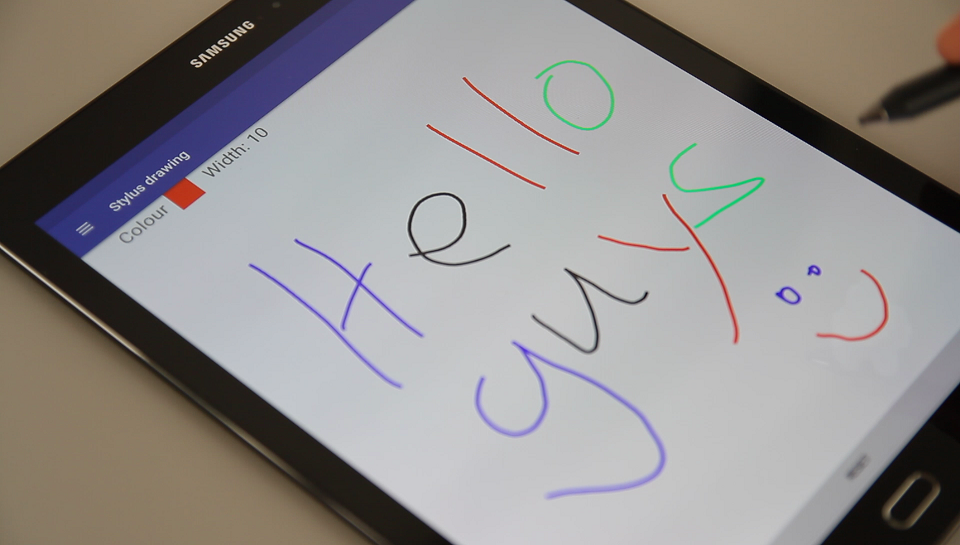 SAMSUNG
Stylus drawing
Colour Width: 10
Hello
guys